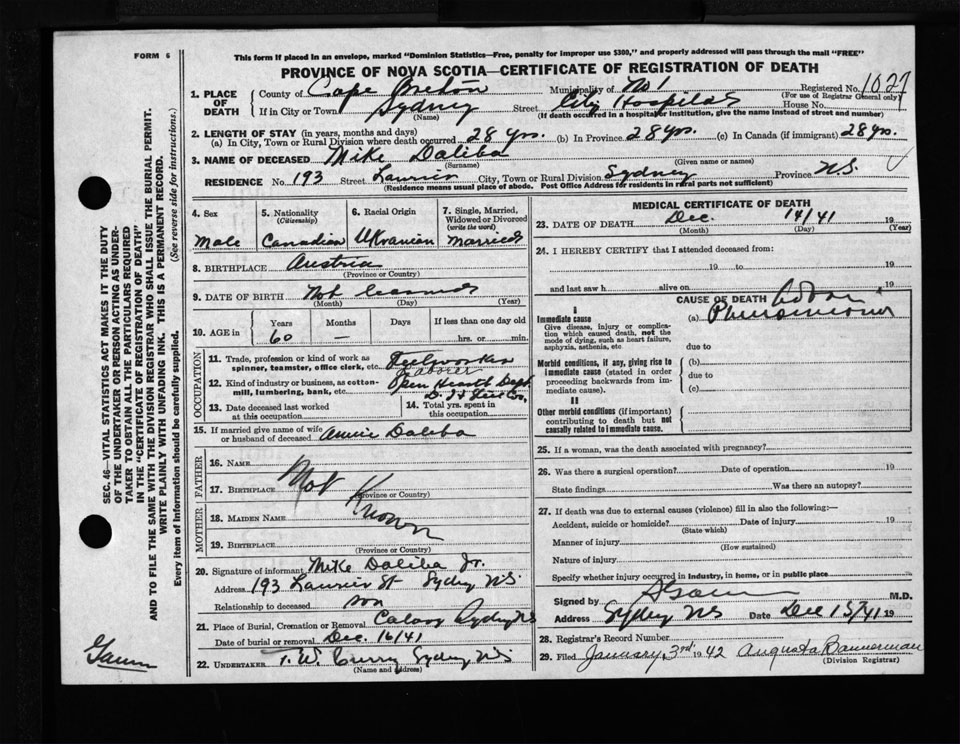 FORM 6
This form if placed in an envelope, marked "Dominion Statistics—Free, penalty for improper use $300," and properly addressed will pass through the mail "FREE"
PROVINCE OF NOVA SCOTIA—CERTIFICATE OF REGISTRATION OF DEATH
1. PLACE OF DEATH County of Cape Breton Municipality of No 1 Registered No. 1027
(For use of Registrar General only)
If in City or Town Sydney Street City Hospital House No.
(Name) (If death occurred in a hospital or institution, give the name instead of street and number)
2. LENGTH OF STAY (in years, months and days)
(a) In City, Town or Rural Division where death occurred 28 yrs. (b) In Province 28 yrs. (c) In Canada (if immigrant) 28 yrs.
3. NAME OF DECEASED Mike Daliba
(Surname) (Given name or names)
RESIDENCE No. 193 Street Laurier City, Town or Rural Division Sydney Province N.S.
(Residence means usual place of abode. Post Office Address for residents in rural parts not sufficient)
4. Sex Male
5. Nationality (Citizenship) Canadian
6. Racial Origin Ukranian
7. Single, Married, Widowed or Divorced (write the word) Married
8. BIRTHPLACE Austria
(Province or Country)
9. DATE OF BIRTH Not
(Month) (Day) (Year)
10. AGE in Years 60 Months — Days If less than one day old
hrs. or min.
OCCUPATION
11. Trade, profession or kind of work as spinner, teamster, office clerk, etc. Steelworker
Laborer
12. Kind of industry or business, as cotton-mill, lumbering, bank, etc. Open Hearth Dept
D. I & Steel Co.
13. Date deceased last worked at this occupation
14. Total yrs. spent in this occupation
15. If married give name of wife or husband of deceased Annie Daliba
FATHER
16. NAME
17. BIRTHPLACE Not Known
(Province or Country)
MOTHER
18. MAIDEN NAME
19. BIRTHPLACE
(Province or Country)
20. Signature of informant Mike Daliba Jr.
Address 193 Laurier St Sydney N.S.
Relationship to deceased son
21. Place of Burial, Cremation or Removal Calvary Sydney NS
Date of burial or removal Dec. 16/41
22. UNDERTAKER T. W. Curry Sydney N.S
(Name and address)
MEDICAL CERTIFICATE OF DEATH
23. DATE OF DEATH Dec. 14/41 19
(Month) (Day) (Year)
24. I HEREBY CERTIFY that I attended deceased from:
19 to 19
and last saw h alive on 19
CAUSE OF DEATH
I
Immediate cause
Give disease, injury or complication which caused death, not the mode of dying, such as heart failure, asphyxia, asthenia, etc.
(a) Pneumonia
due to
Morbid conditions, if any, giving rise to immediate cause (stated in order proceeding backwards from immediate cause).
(b)
due to
(c)
II
Other morbid conditions (if important) contributing to death but not causally related to immediate cause.
25. If a woman, was the death associated with pregnancy?
26. Was there a surgical operation? Date of operation 19
State findings Was there an autopsy?
27. If death was due to external causes (violence) fill in also the following:—
Accident, suicide or homicide? Date of injury 19
(State which)
Manner of injury
(How sustained)
Nature of injury
Specify whether injury occurred in Industry, in home, or in public place
Signed by M.D.
Address Sydney NS Date Dec 15/41 19
28. Registrar's Record Number
29. Filed January 3rd 1942 Augusta Bannerman
(Division Registrar)
SEC. 46—VITAL STATISTICS ACT MAKES IT THE DUTY
OF THE UNDERTAKER OR PERSON ACTING AS UNDER-
TAKER TO OBTAIN ALL THE PARTICULARS REQUIRED
IN THE "CERTIFICATE OF REGISTRATION OF DEATH"
AND TO FILE THE SAME WITH THE DIVISION REGISTRAR WHO SHALL ISSUE THE BURIAL PERMIT.
WRITE PLAINLY WITH UNFADING INK. THIS IS A PERMANENT RECORD.
Every item of information should be carefully supplied.
(See reverse side for instructions.)